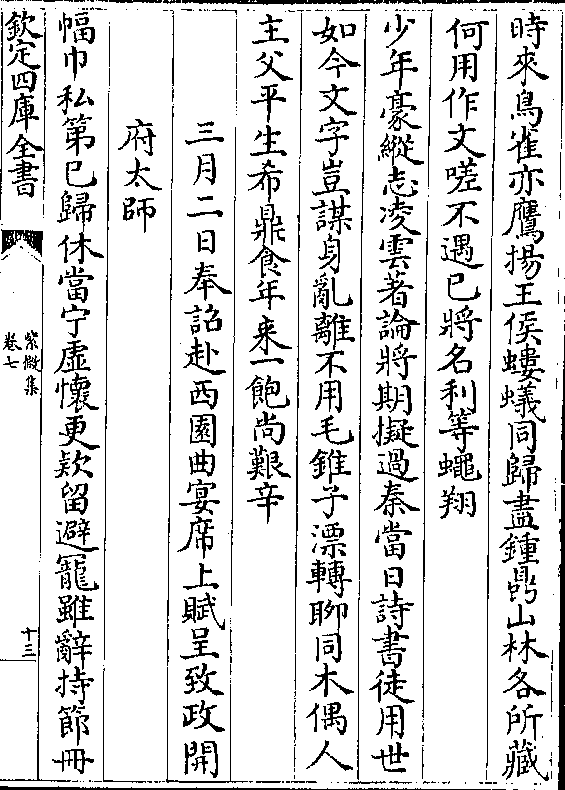 時來鳥雀亦鷹揚王侯螻蟻同歸盡鍾鼎山林各所藏
何用作文嗟不遇已將名利等蠅翔
少年豪縱志凌雲著論將期擬過秦當日詩書徒用世
如今文字豈謀身亂離不用毛錐子漂轉聊同木偶人
主父平生希鼎食年来一飽尚艱辛
三月二日奉詔赴西園曲宴席上賦呈致政開
府太師
幅巾私第已歸休當宁虛懷更欵留避寵雖辭持節冊
欽定四庫全書
紫微集
卷七
十三